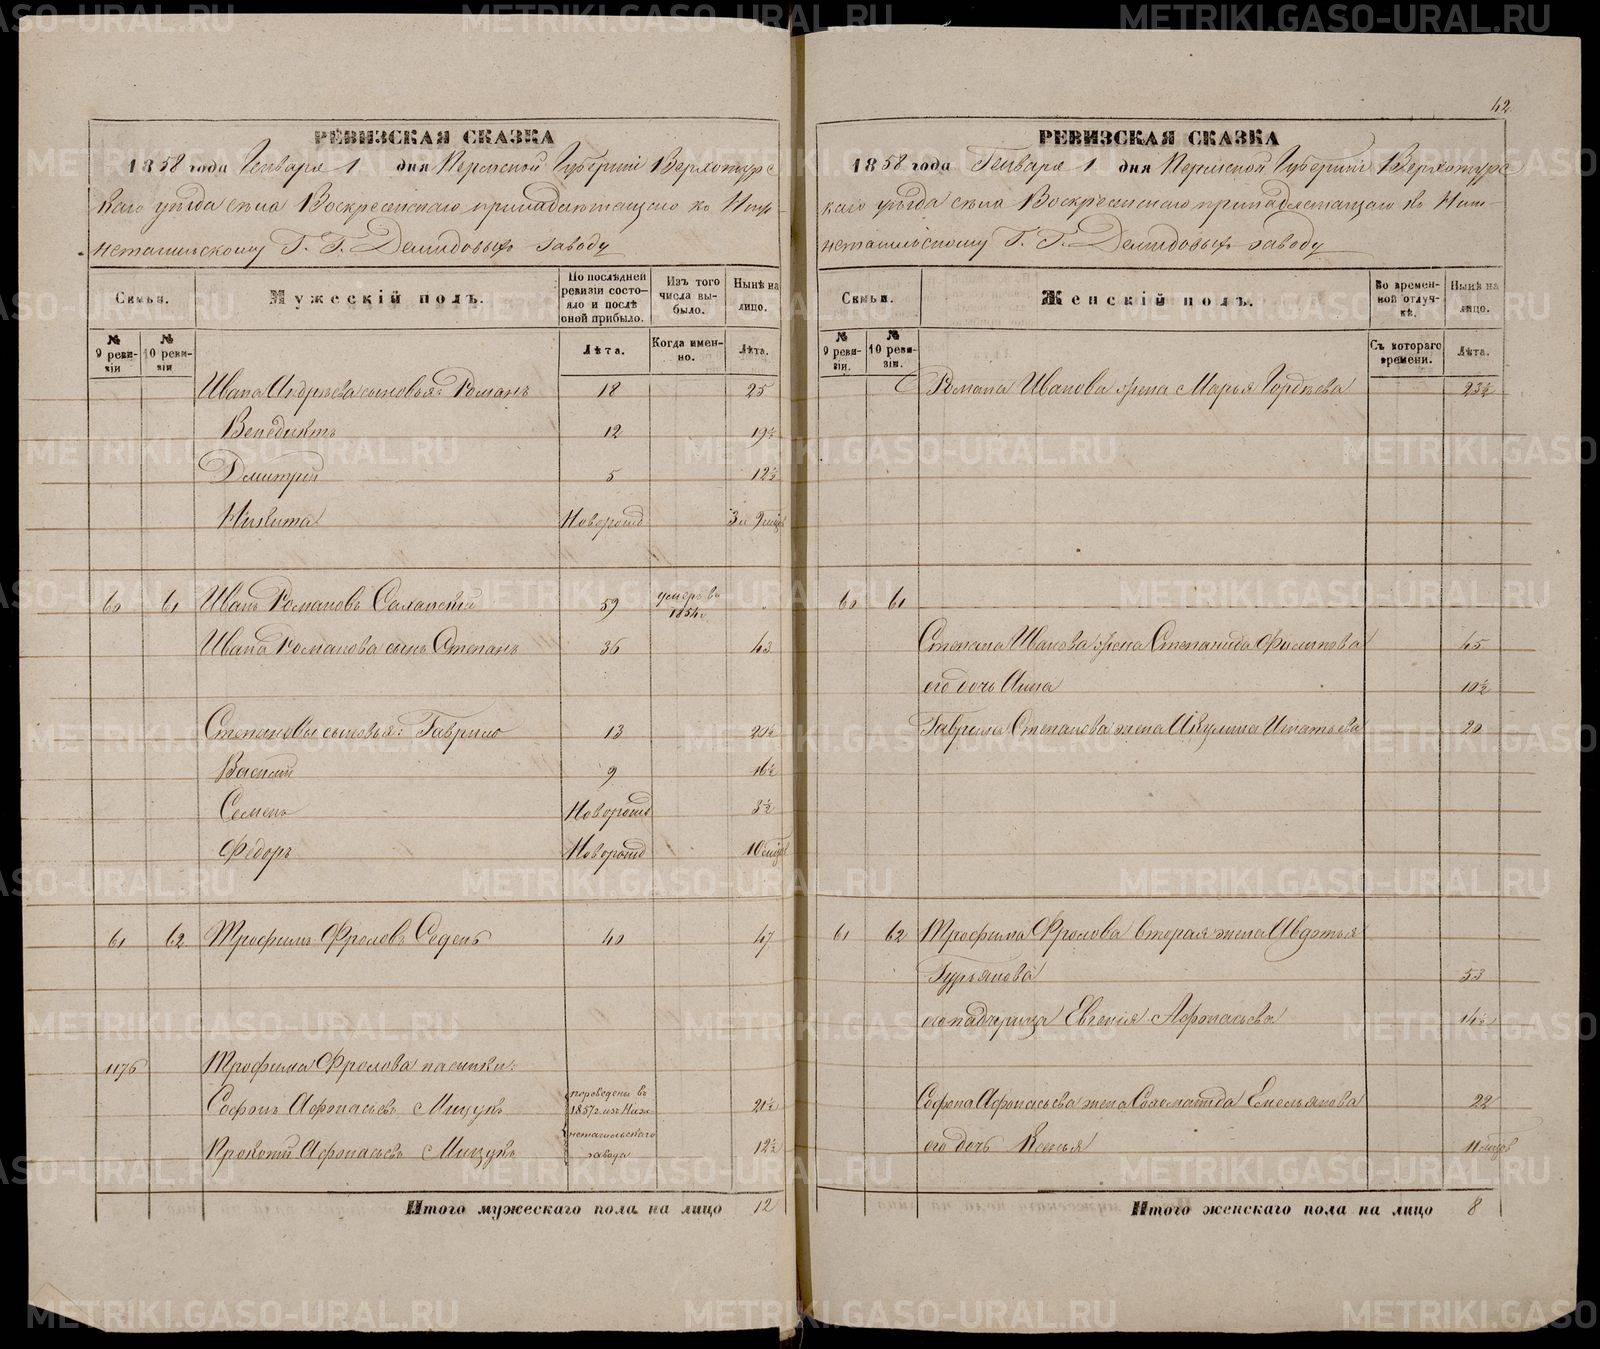 42
РЕВИЗСКАЯ СКАЗКА
1858 года Генваря 1 дня Пермской Губернiи Верхотурс
каго уѣзда села Воскресенскаго принадлежащаго къ Ниж-
нетагильскому Г. Г. Демидовыхъ заводу
Семьи.
Мужескiй полъ.
По послѣдней ревизiи состо-яло и послѣ оной прибыло.
Изъ того числа вы-было.
Нынѣ на лицо.
№ 9 реви-зiи
№ 10 реви-зiи
Лѣта.
Когда имен-но.
Лѣта.
Ивана Андреева сыновья: Романъ 18 25
Венедиктъ 12 19½
Дмитрiй 5 12½
Никита Новорожд 3 и 9 мцов
60 61 Иванъ Романовъ 59 умеръ въ 1854г.
Ивана Романова сынъ Степанъ 36 43
Степановы сыновья: Гаврило 13 20½
Василiй 9 16½
Семенъ Новорожд 3½
Федоръ Новорожд 10 мцов
61 62 Трофимъ Фроловъ Седень 40 47
1176 Трофима Фролова пасынки:
Софонъ Афонасьевъ Мицукъ переведены въ 1857г. изъ Ниж 20½
Прокопiй Афонасьевъ Мицукъ нетагильскаго завода 12½
Итого мужескаго пола на лицо 12
РЕВИЗСКАЯ СКАЗКА
1858 года Генваря 1 дня Пермской Губернiи Верхотурс
каго уѣзда села Воскресенскаго принадлежащаго къ Ниж-
нетагильскому Г. Г. Демидовыхъ заводу
Семьи.
Женскiй полъ.
Во времен-ной отлуч-кѣ.
Нынѣ на лицо.
№ 9 реви-зiи.
№ 10 реви-зiи.
Съ котораго времени.
Лѣта.
Романа Иванова жена Марья Гордѣева 23½
60 61
Степана Иванова жена Степанида Филипова 45
его дочь Анна 10½
Гаврила Степанова жена Акулина Игнатьева 20
61 62 Трофима Фролова вторая жена Авдотья
Гурьянова 53
его падчерица Евгенiя Афонасьева 14½
Софона Афонасьева жена Соломанида Емельянова 22
его дочь Ксенья 11 мцов
Итого женскаго пола на лицо 8
METRIKI.GASO-URAL.RU